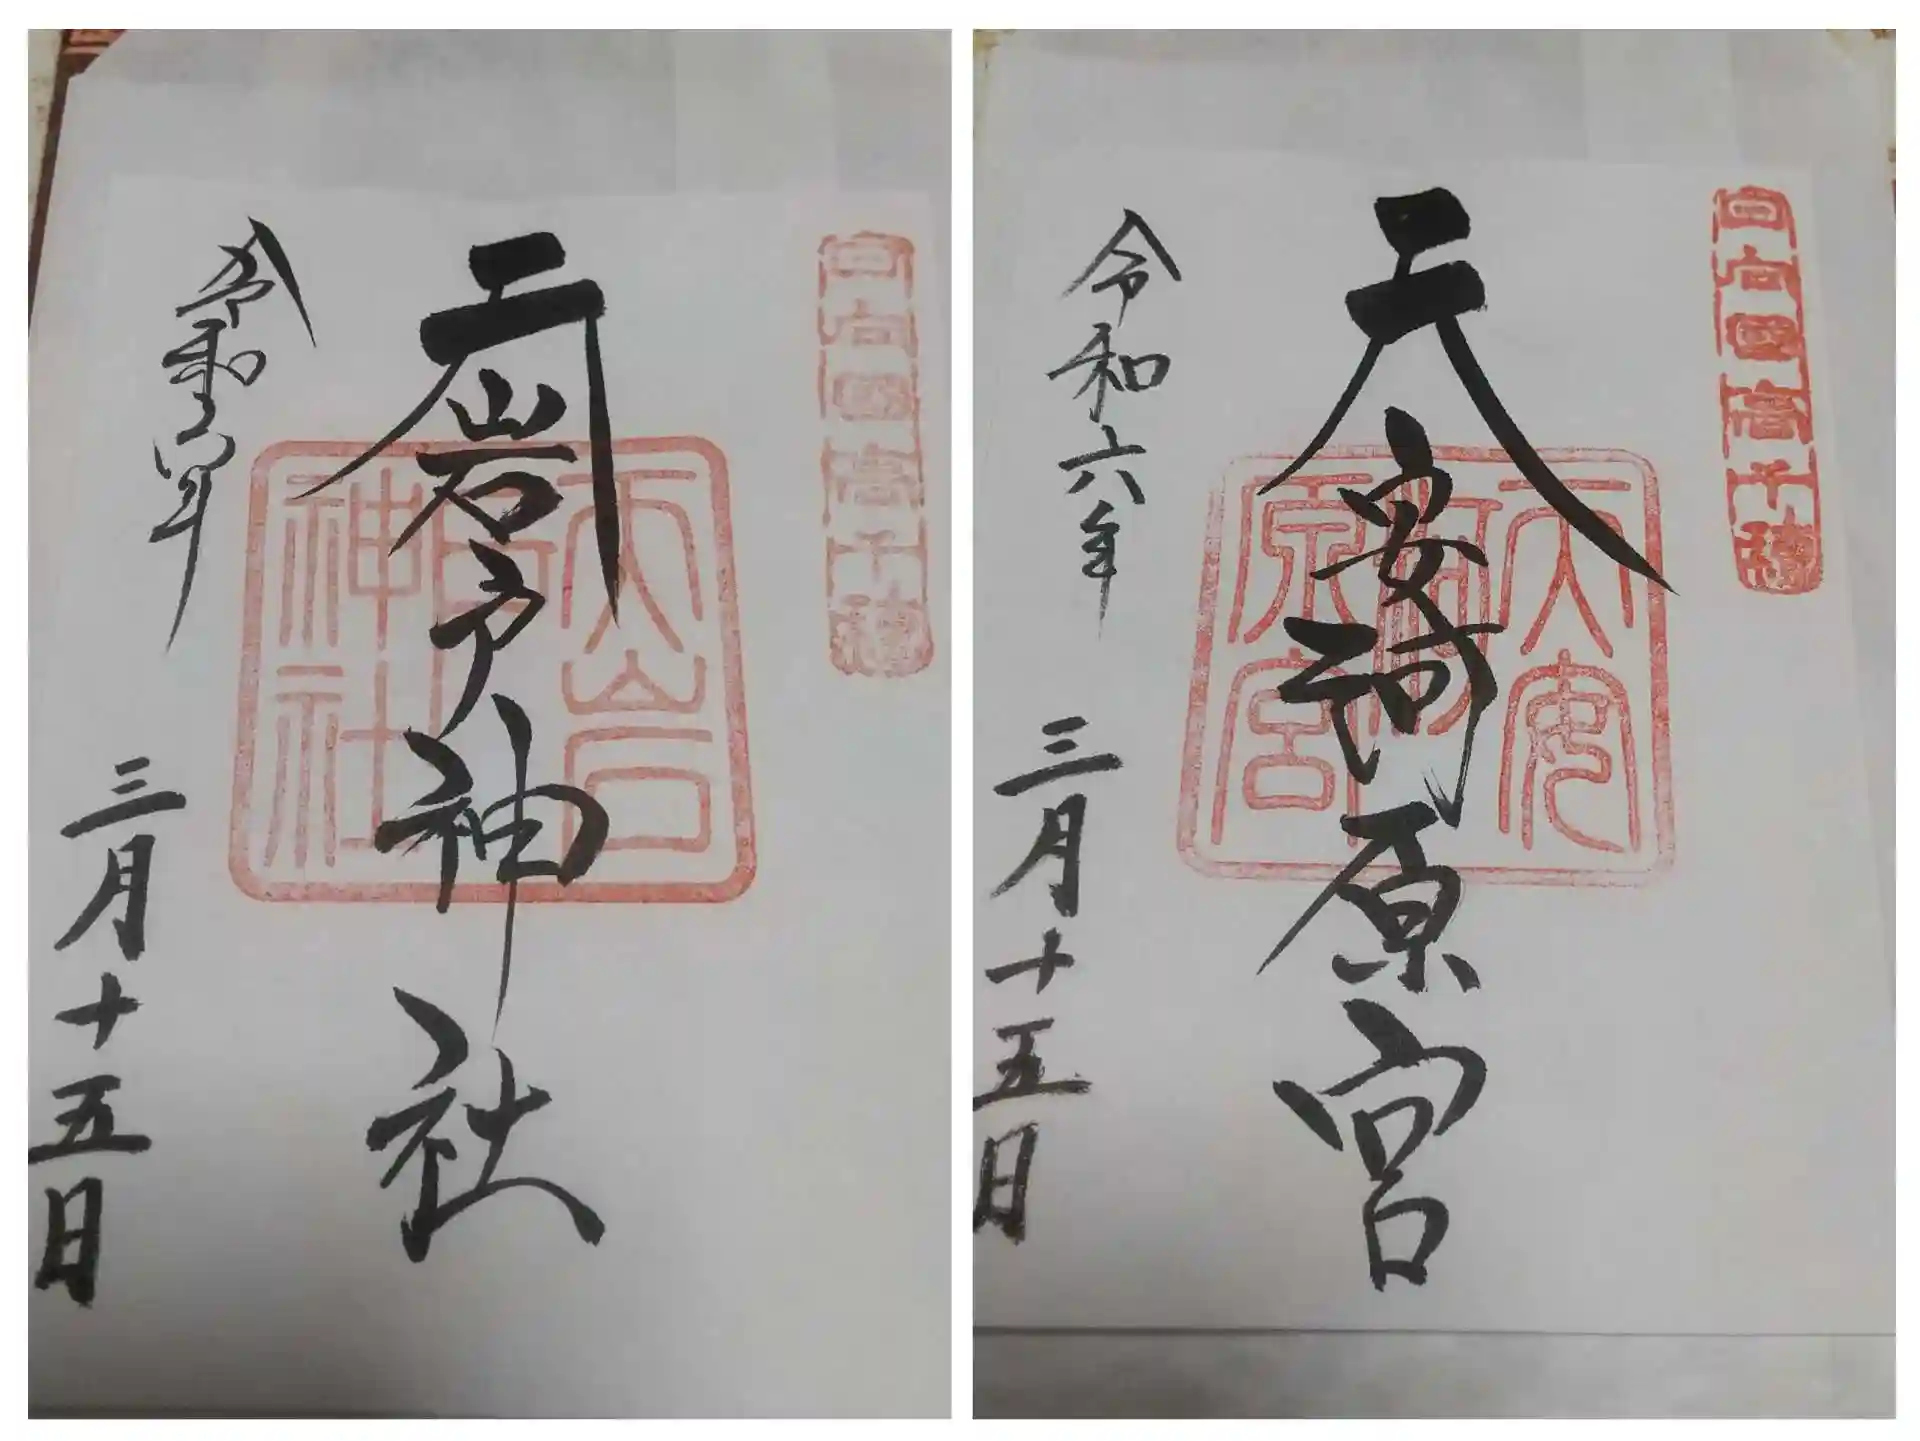 日向国高千穂
天岩戸神社
天岩戸神社
令和六年
三月十五日
日向国高千穂
天安河原宮
天安河原宮
令和六年
三月十五日